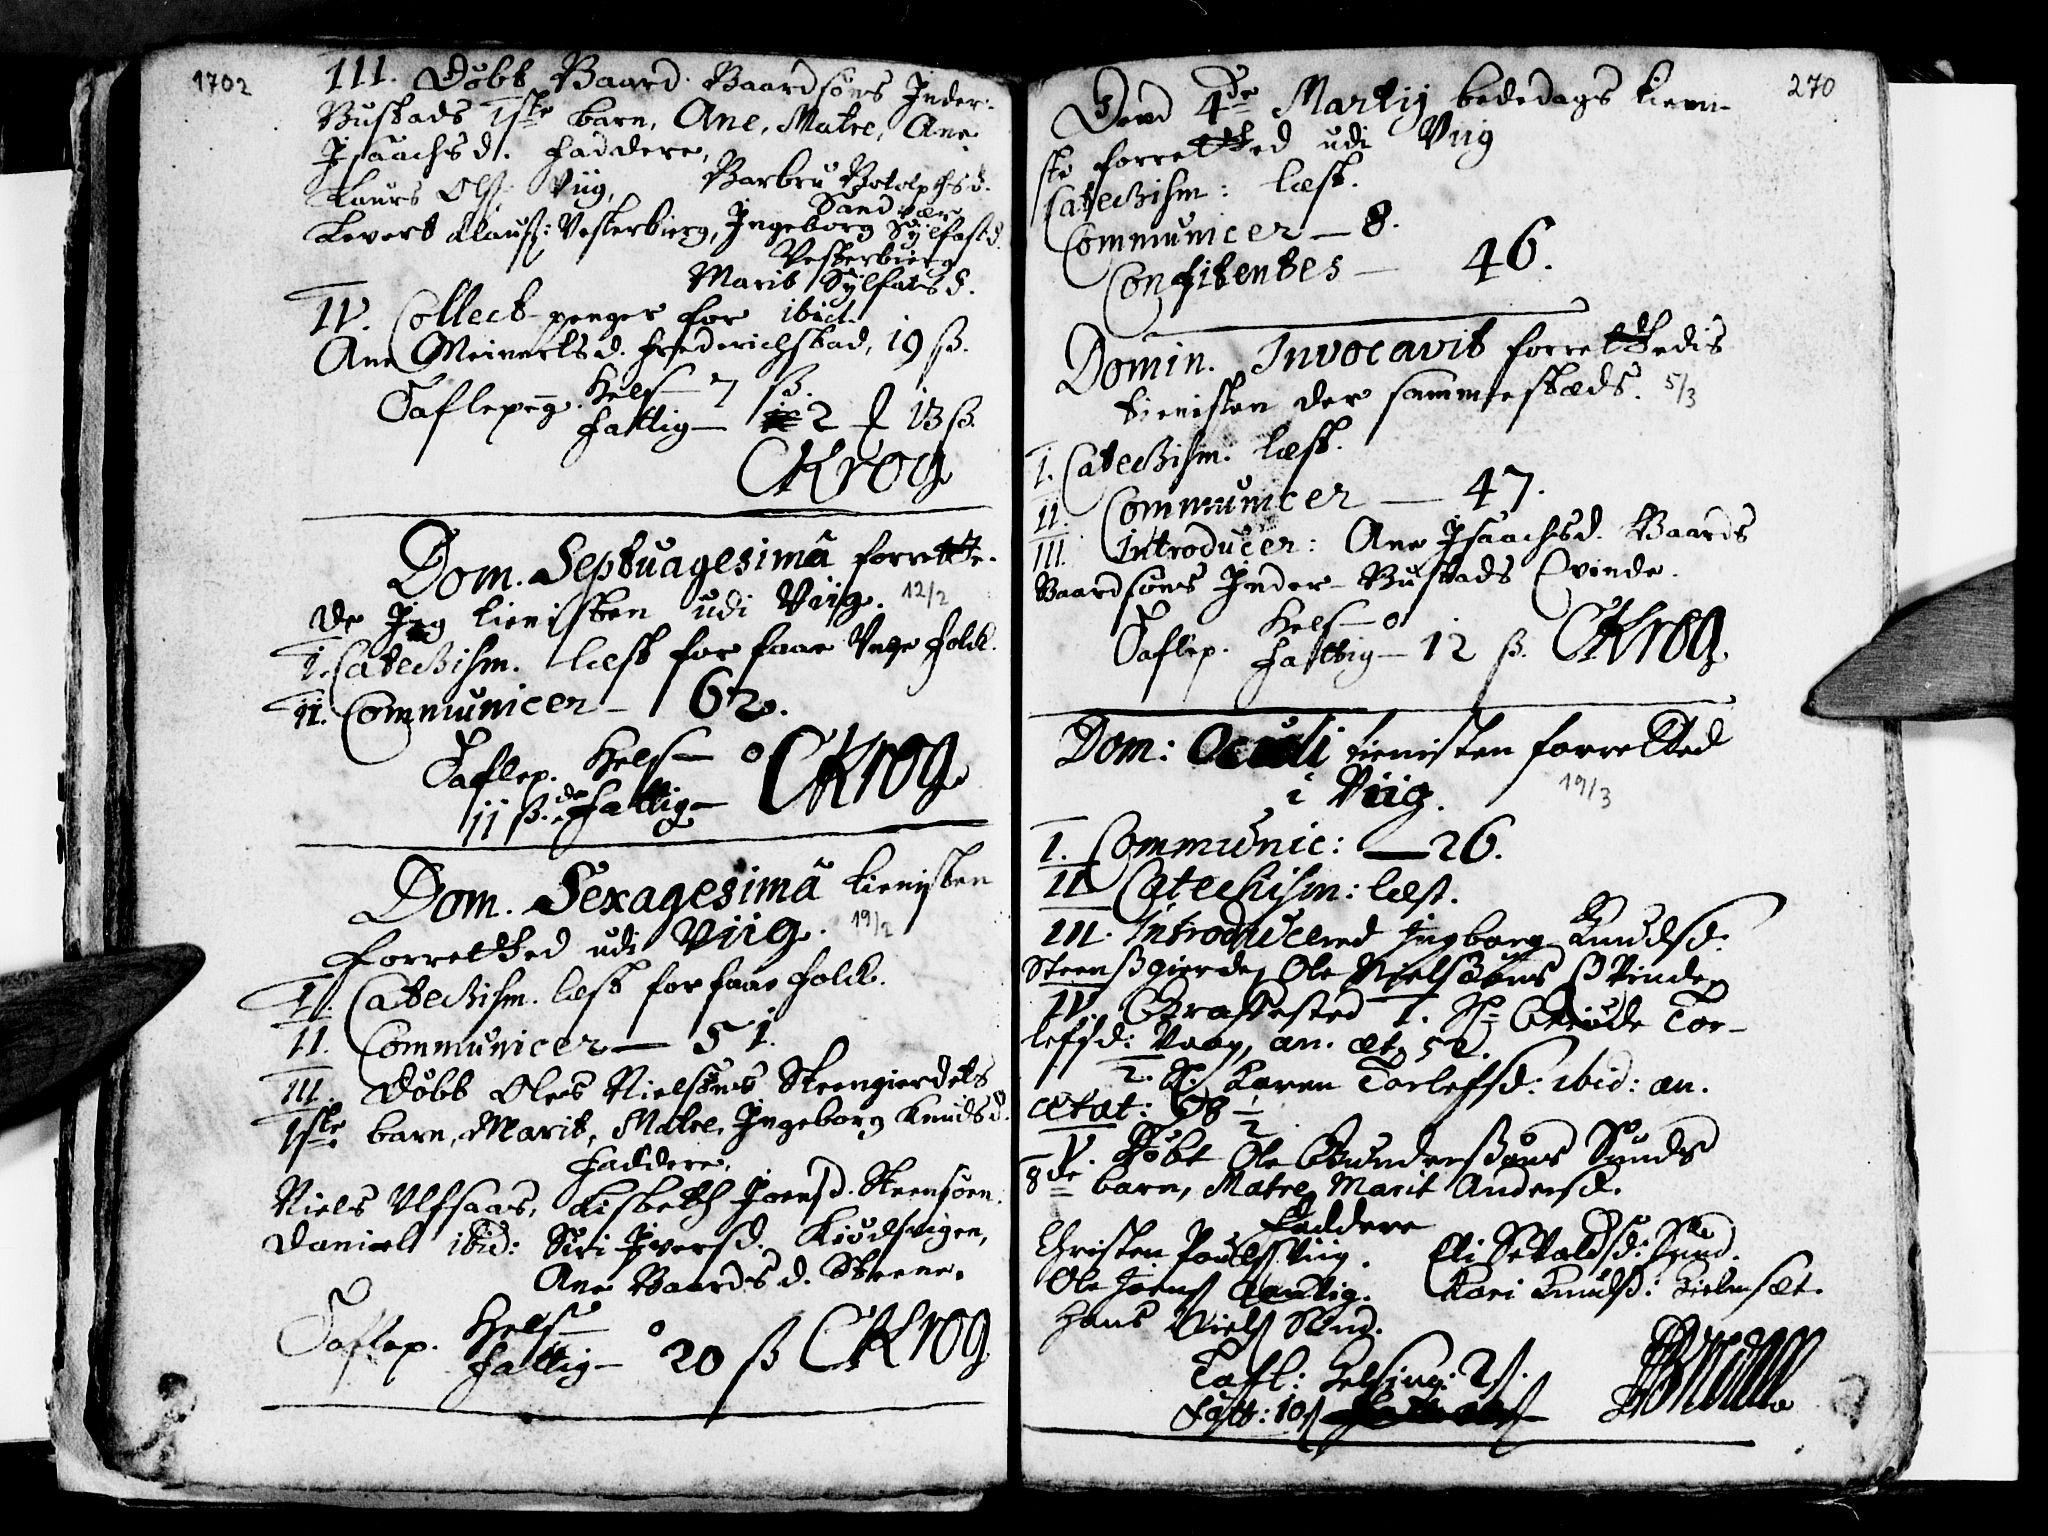 1702
III. Döbt Baard Baardsöns Inder-
Bustads 1ste barn, Ane, Matre, Ane
Isaachsd. faddere,
Laurs Ols: Viig, Barbru Botolphsd.
Sandvær
Levert Clauss: Vesterbierg, Ingeborg Sylfastd.
Vesterbierg
Marit Sylfatsd.
IV. Collect-penger for ibid.
Ane Meinertsd. Frederichstad, 19 ß.
Taflepeng. Hels— 7 ß.
fattig— 2 13 ß.
CKrog
Dom. Septuagesimâ forrette-
de Jeg tienisten udi Viig. 12/2
I. Catechism. læst for faae Unge folck.
II. Communicer— 62.
Taflep. Hels— 0 CKrog
11 ß. de fattig—
Dom. Sexagesimâ tienisten
forretted udi Viig. 19/2
I. Catechism. læst for faae folck.
II. Communicer— 51.
III. Döbt Oles Nielsöns Steengierdets
1ste barn, Marit, Matre, Ingeborg Knudsd.
faddere,
Niels Ulfsaas, Lisbeth Joensd. Steensöen.
Daniel ibid: Siri Iversd. Kiödsvigen,
Ane Baardsd. Steene.
Taflep. Hels— 0
fattig— 20 ß CKrog
270
Dend 4de Martij bededags tieni-
ste forretted udi Viig
Catechism: læst.
Communicer— 8.
Confitentes— 46.
Domin. Invocavit forrettedis
tienisten der sammesteds. 5/3
I. Catechism. læst.
II. Communicer— 47.
III. Introducer: Ane Isaachsd. Baards
Baardsöns Inder-Bustads Qvinde.
Taflep. Hels— 0
fattig— 12 ß. CKrog
Dom: Oculi tienisten forretted
i Viig. 19/3
I. Communic: —26.
II. Catechism: læst.
III. Introducered Ingborg Knudsd:
Steensgierde, Ole Nielsöns Qvinde,
IV. Graffested 1. Sl: Tor-
lefsd: Vaag, an. æt. 52.
2. Sl: Karen Torlefsd: ibid: an.
ætat: 1/2
V. Döbt Ole Gundersöns Sunds
8de barn, Matre, Marit Andersd.
Faddere
Christen Pouls Viig. Eli Sevaldsd: Sund.
Ole Joens Kari Knudsd:
Hans Niels Sund.
Tafl: Helsing: 2 ß.
Fatt: 10 ß